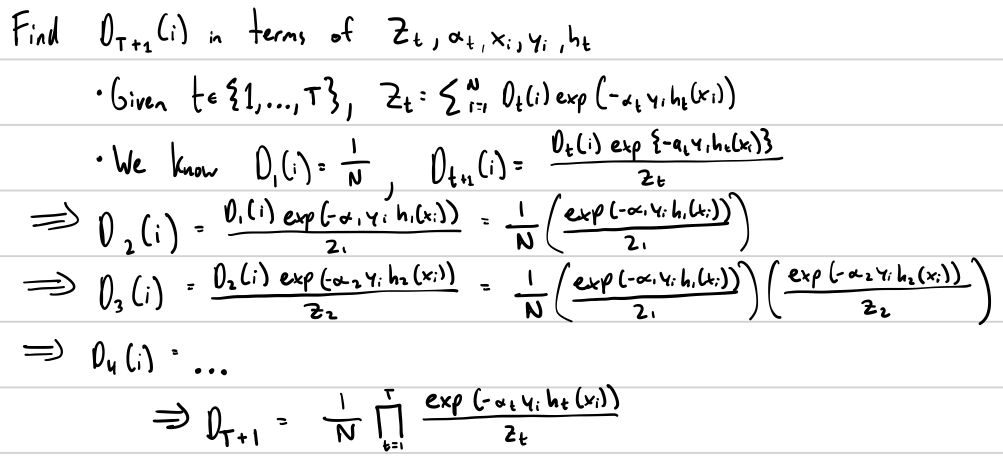 Find D_{T+1}(i) in terms of Z_t, α_t, x_i, y_i, h_t
• Given t ∈ {1,...,T}, Z_t = Σ_{i=1}^N D_t(i) exp(-α_t y_i h_t(x_i))
• We know D_1(i) = 1/N, D_{t+1}(i) = D_t(i) exp{-α_t y_i h_t(x_i)} / Z_t
⇒ D_2(i) = D_1(i) exp(-α_1 y_i h_1(x_i)) / Z_1 = 1/N (exp(-α_1 y_i h_1(x_i)) / Z_1)
⇒ D_3(i) = D_2(i) exp(-α_2 y_i h_2(x_i)) / Z_2 = 1/N (exp(-α_1 y_i h_1(x_i)) / Z_1) (exp(-α_2 y_i h_2(x_i)) / Z_2)
⇒ D_4(i) = ...
⇒ D_{T+1} = 1/N ∏_{t=1}^T exp(-α_t y_i h_t(x_i)) / Z_t